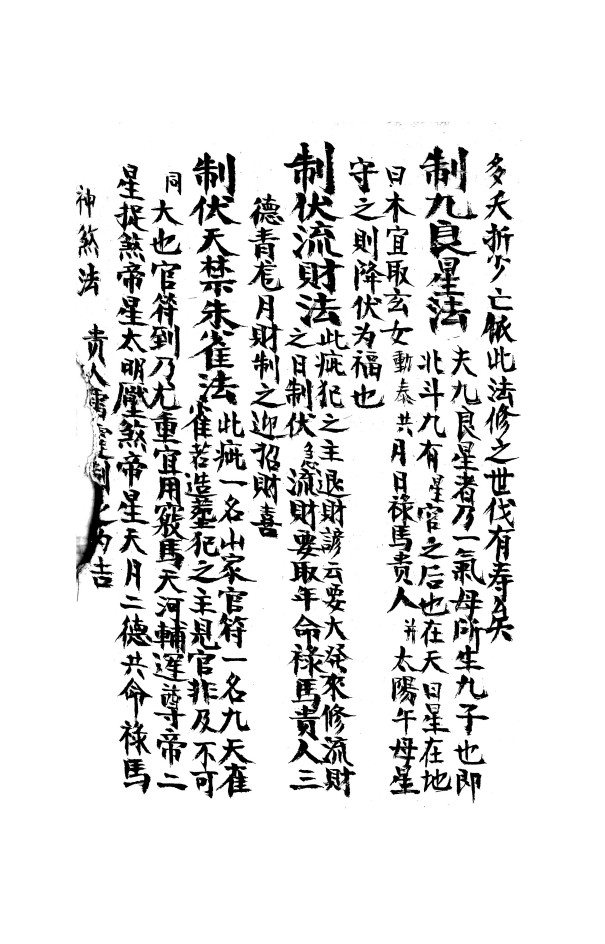 多夭折少亡依此法修之世代有寿矣
制九良星法 夫九良星者乃一氣母所生九子也即
北斗九有星官之后也在天曰星在地
曰木宜取玄女動泰共月日祿馬貴人并太陽午母星
守之則降伏为福也
制伏流財法 此疵犯之主退財諺云要大發來修流財
之日制伏急流財要取年命祿馬貴人三
德青龍月財制之迎招財喜
制伏天禁朱雀法 此疵一名山家官符一名九天雀
雀若造塟犯之主見官非及不可
同大也官符到乃尤重宜用竅馬天河輔運尊帝二
星捉煞帝星太明壓煞帝星天月二德共命祿馬
神煞法 貴人 制之为吉